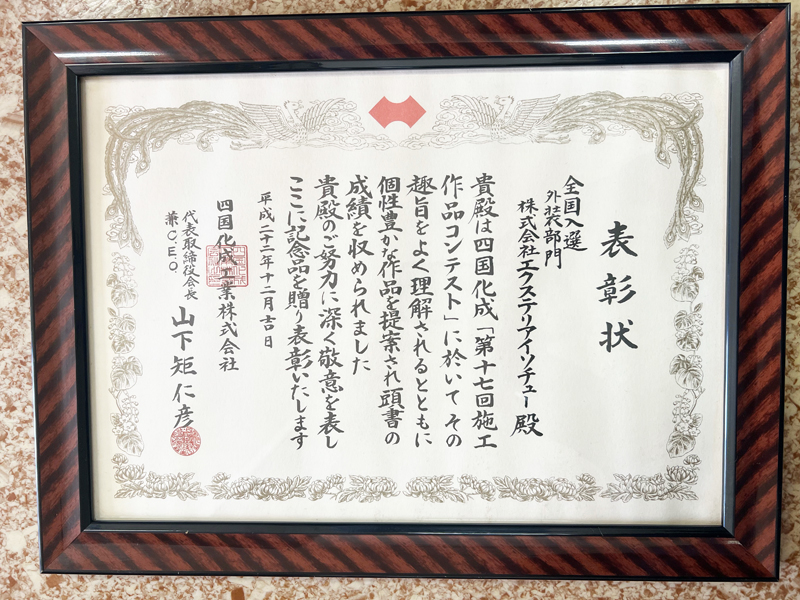 表彰状
全国入選
外壮装部門
株式会社エクステリアイソチュー 殿
貴殿は四国化成「第十七回施工
作品コンテスト」に於いて その
趣旨をよく理解されるとともに
個性豊かな作品を提案され頭書の
成績を収められました
貴殿のご努力に深く敬意を表し
ここに記念品を贈り表彰いたします
平成二十二年十二月吉日
四国化成工業株式会社
代表取締役会長
兼C.E.O.
山下矩仁彦